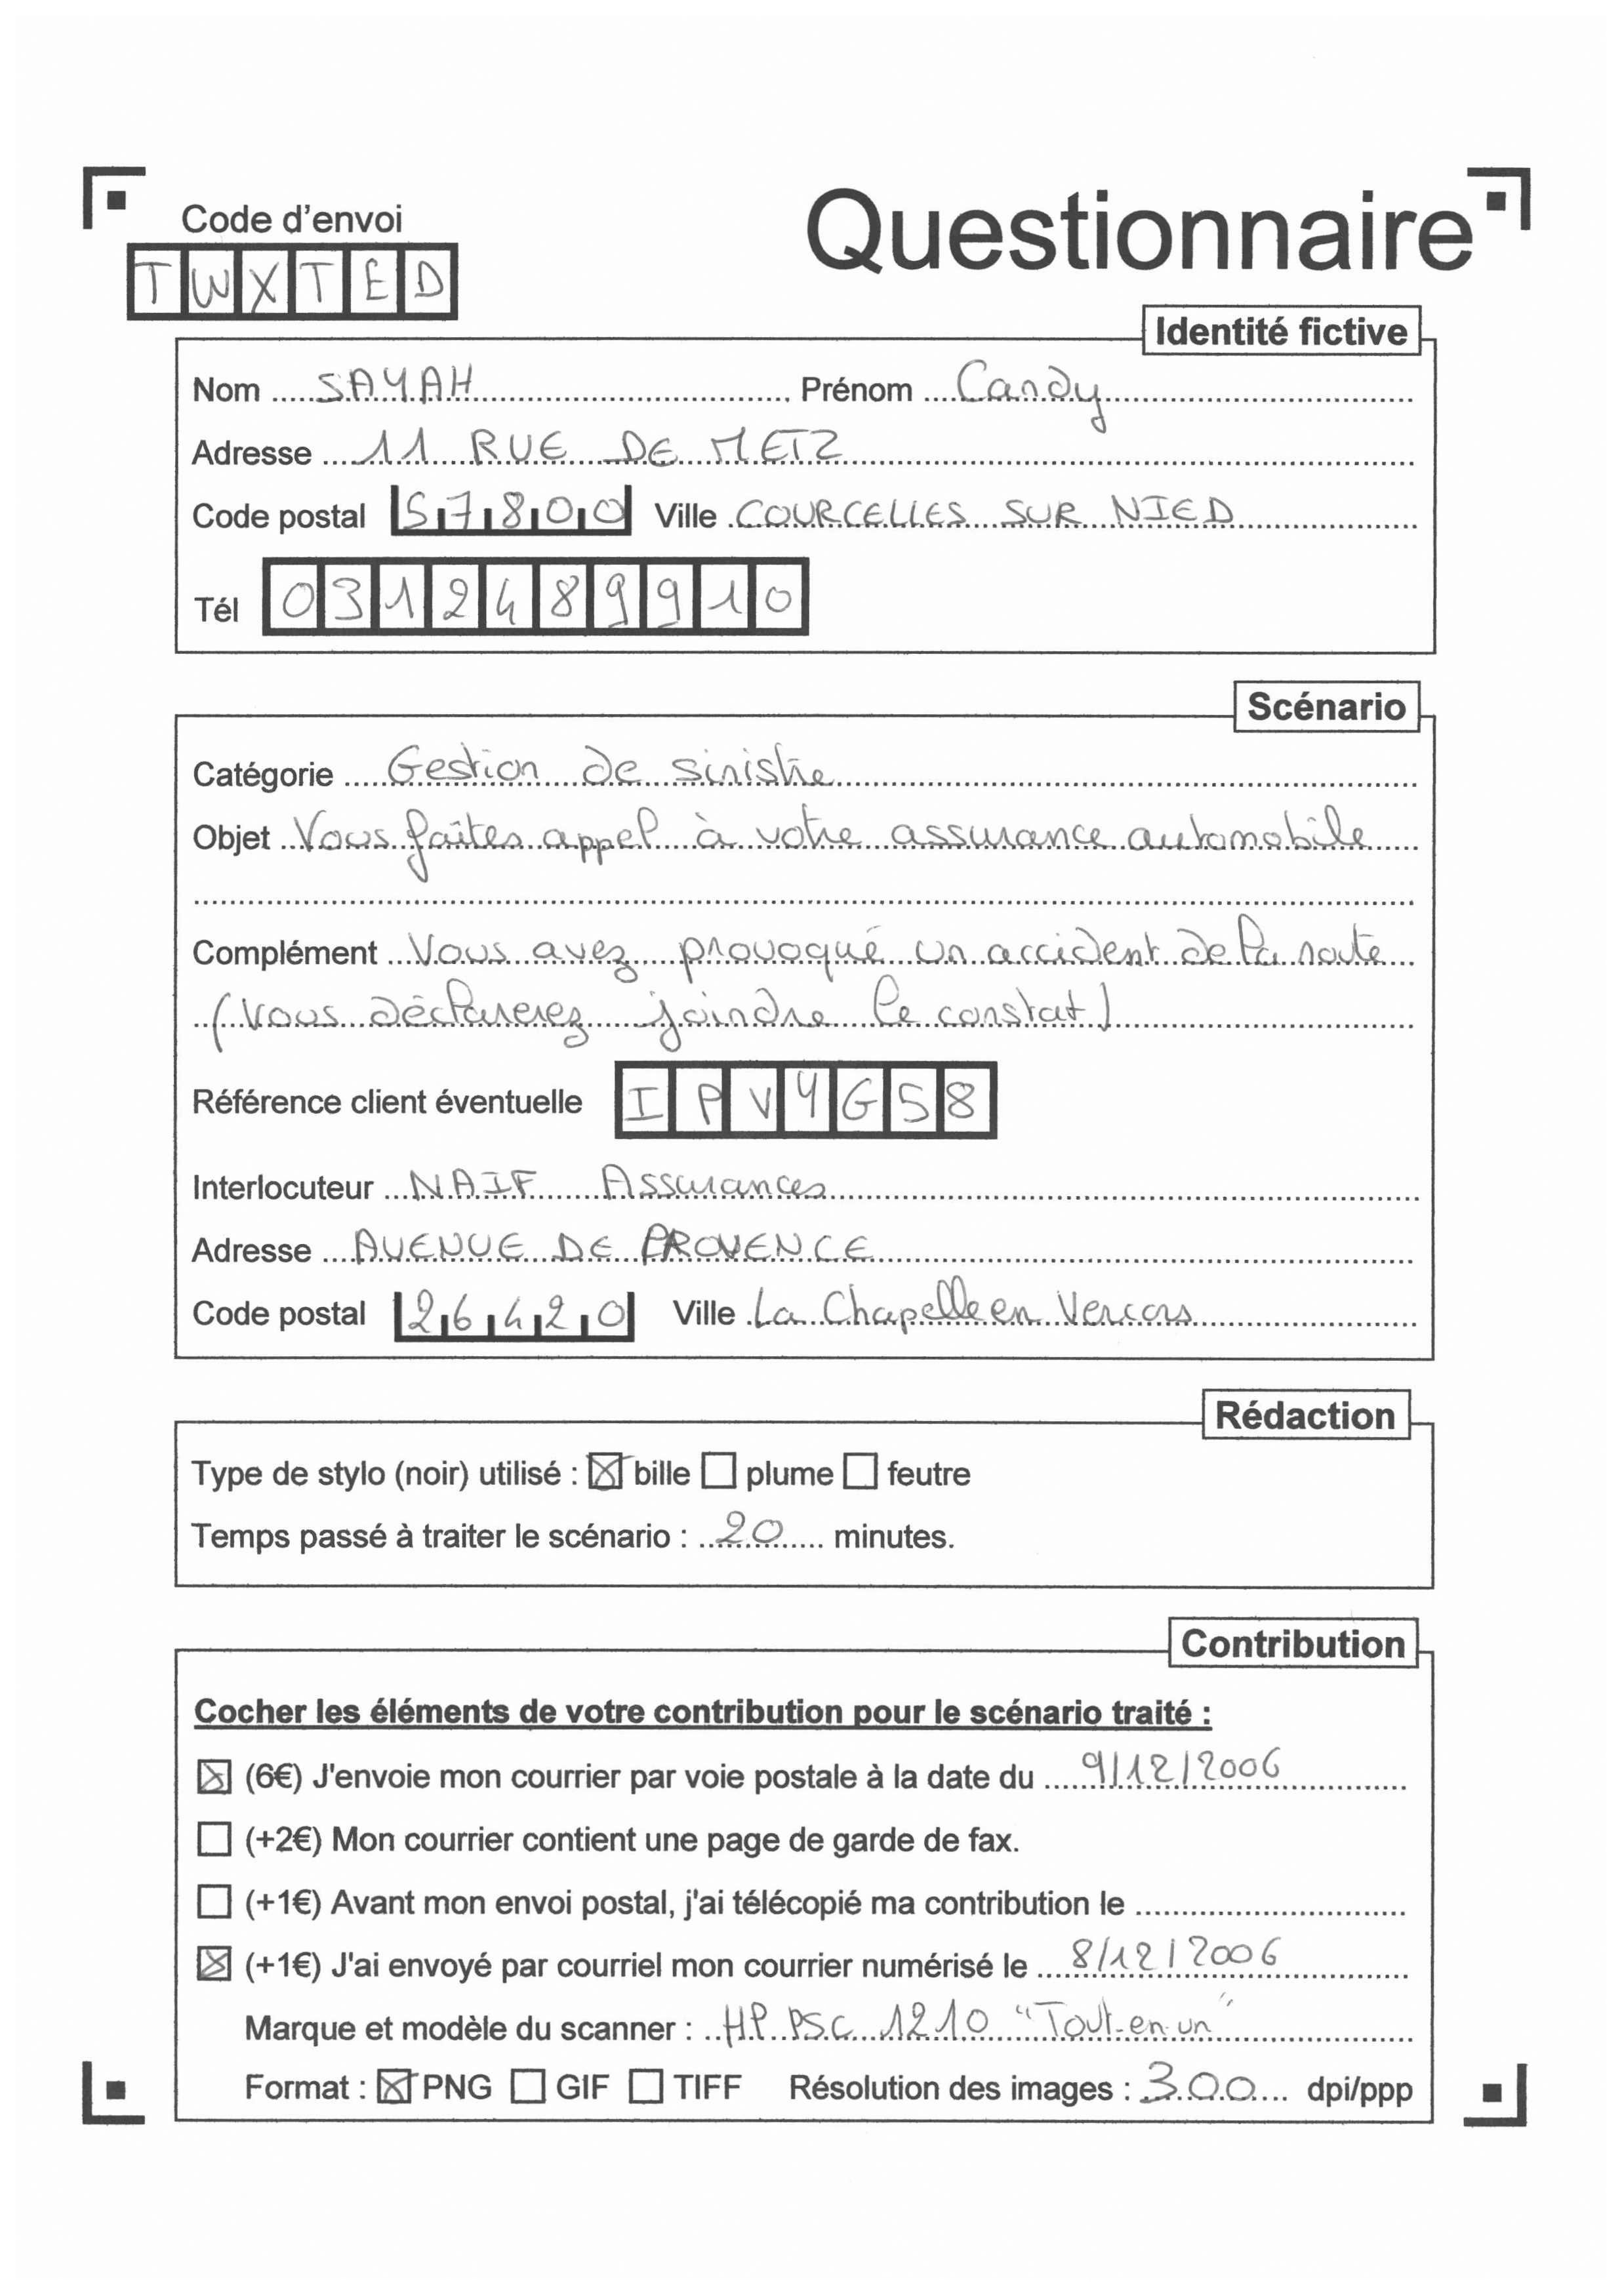 Code d'envoi
Questionnaire
TWXTED
Identité fictive
Nom SAYAH Prénom Candy
Adresse 11 RUE DE METZ
Code postal 57800 Ville COURCELLES SUR NIED
Tél 0312489910
Scénario
Catégorie Gestion de sinistre
Objet Vous faites appel à votre assurance automobile
Complément Vous avez provoqué un accident de la route
(Vous déclarerez joindre le constat)
Référence client éventuelle IPVYG58
Interlocuteur NAIF Assurances
Adresse AVENUE DE PROVENCE
Code postal 26420 Ville La Chapelle en Vercors
Rédaction
Type de stylo (noir) utilisé : ☒ bille ☐ plume ☐ feutre
Temps passé à traiter le scénario : 20 minutes.
Contribution
Cocher les éléments de votre contribution pour le scénario traité :
☒ (6€) J'envoie mon courrier par voie postale à la date du 9/12/2006
☐ (+2€) Mon courrier contient une page de garde de fax.
☐ (+1€) Avant mon envoi postal, j'ai télécopié ma contribution le
☒ (+1€) J'ai envoyé par courriel mon courrier numérisé le 8/12/2006
Marque et modèle du scanner : HP PSC 1210 "Tout-en-un"
Format : ☒ PNG ☐ GIF ☐ TIFF Résolution des images : 300 dpi/ppp